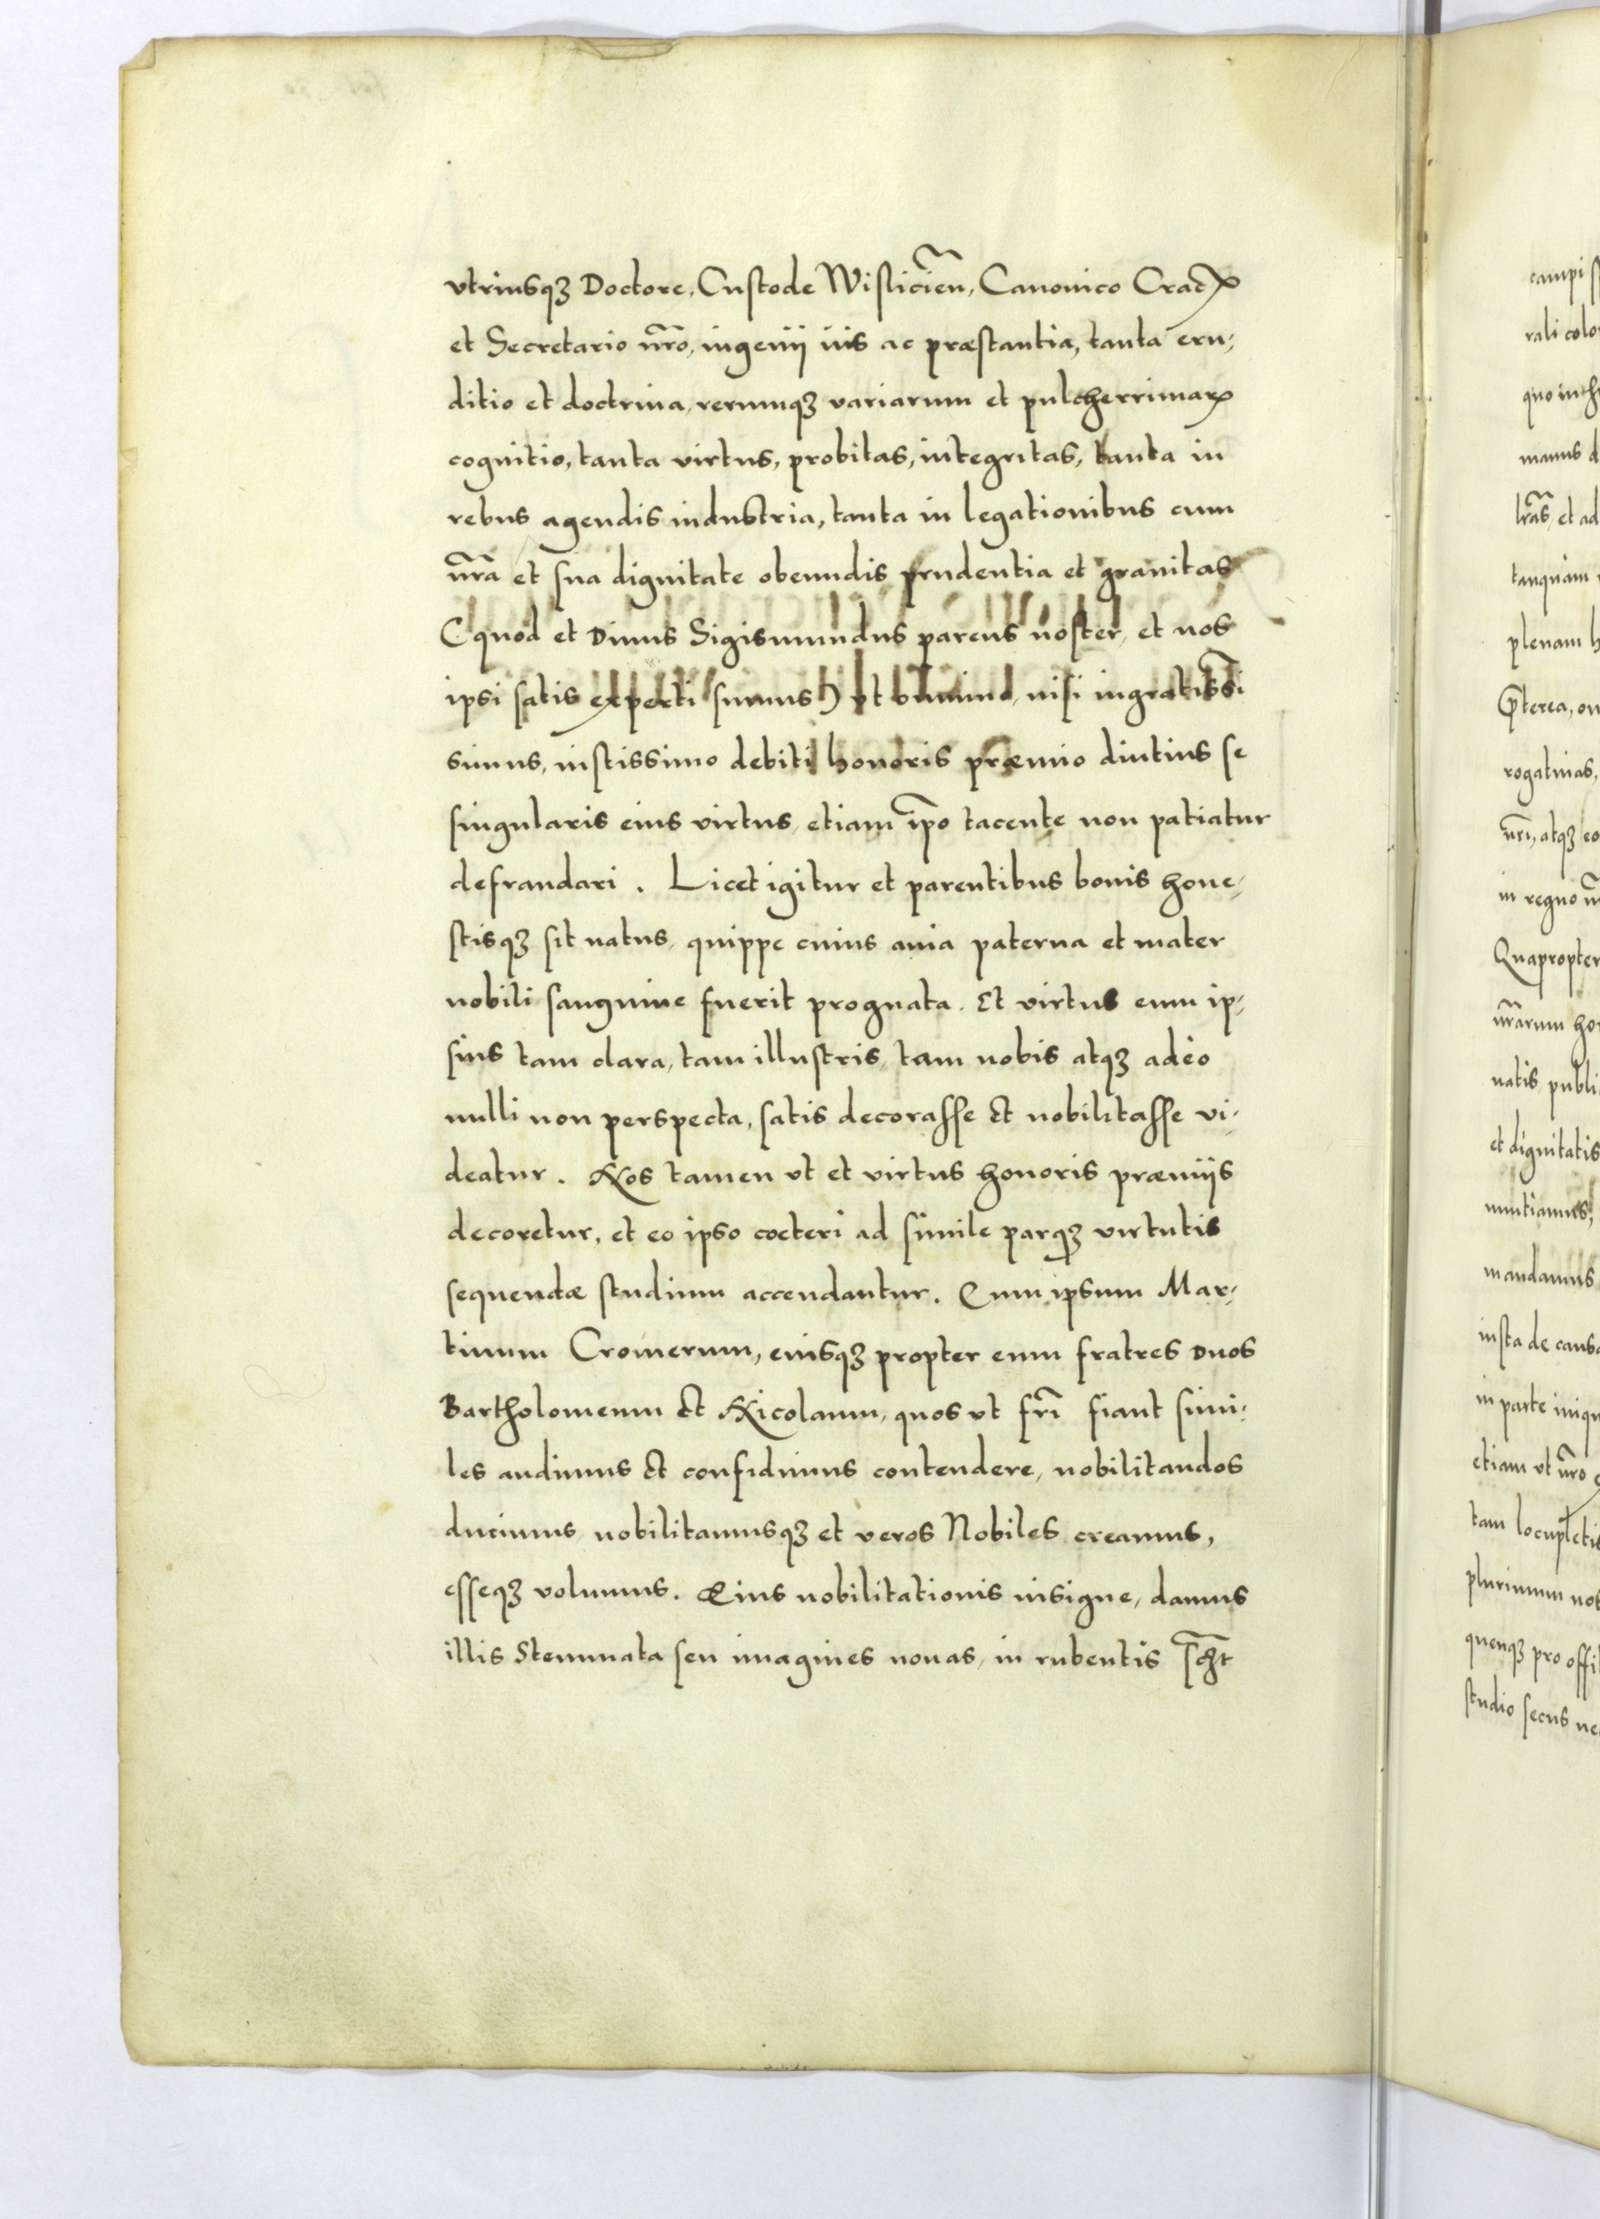 vtriusqȝ Doctore, Custode Wisliciẽn, Canonico Cracꝝ
et Secretario nr̃o, ingenij uis ac præstantia, tanta eru-
ditio et doctrina, rerumqȝ variarum et pulcherrimaꝝ
cognitio, tanta virtus, probitas, integritas, tanta in
rebus agendis industria, tanta in legationibus cum
nr̃a et sua dignitate obeundis prudentia et grauitas
(quod et Diuus Sigismundus parens noster, et nos
ipsi satis experti sumus) vt omnino, nisi ingratissĩ
simus, iustissimo debiti honoris præmio diutius se
singularis eius virtus, etiam ip̃o tacente non patiatur
defraudari. Licet igitur et parentibus bonis hone-
stisqȝ sit natus, quippe cuius auia paterna et mater
nobili sanguine fuerit prognata. Et virtus eum ip-
sius tam clara, tam illustris, tam nobis atqȝ adeo
nulli non perspecta, satis decorasse et nobilitasse vi-
deatur. Nos tamen vt et virtus honoris præmijs
decoretur, et eo ipso cœteri ad simile parqȝ virtutis
sequendæ studium accendantur. Eum ipsum Mar-
tinum Cromerum, eiusqȝ propter eum fratres duos
Bartholomeum et Nicolaum, quos vt fr̃i fiant simi-
les audimus et confidimus contendere, nobilitandos
duximus nobilitamusqȝ et veros Nobiles creamus,
esseqȝ volumus. Eius nobilitationis insigne, damus
illis Stemmata seu imagines nouas, in rubentis
campi
rali
quo
manus
lr̃as, et ad
tanquam
plenam
p̃terea,
rogatiuas,
nr̃i, atqȝ
in regno
Quapropter
nr̃arum
natis
et dignitatis
mandamus
iusta de
in parte
etiam vt nr̃o
tam
plurimum
quenqȝ pro
studio secus